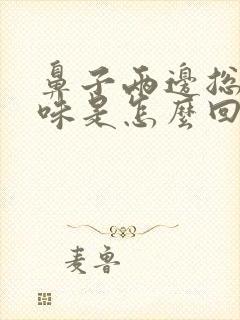 鼻子兩邊總
味是怎麼回
麦鲁